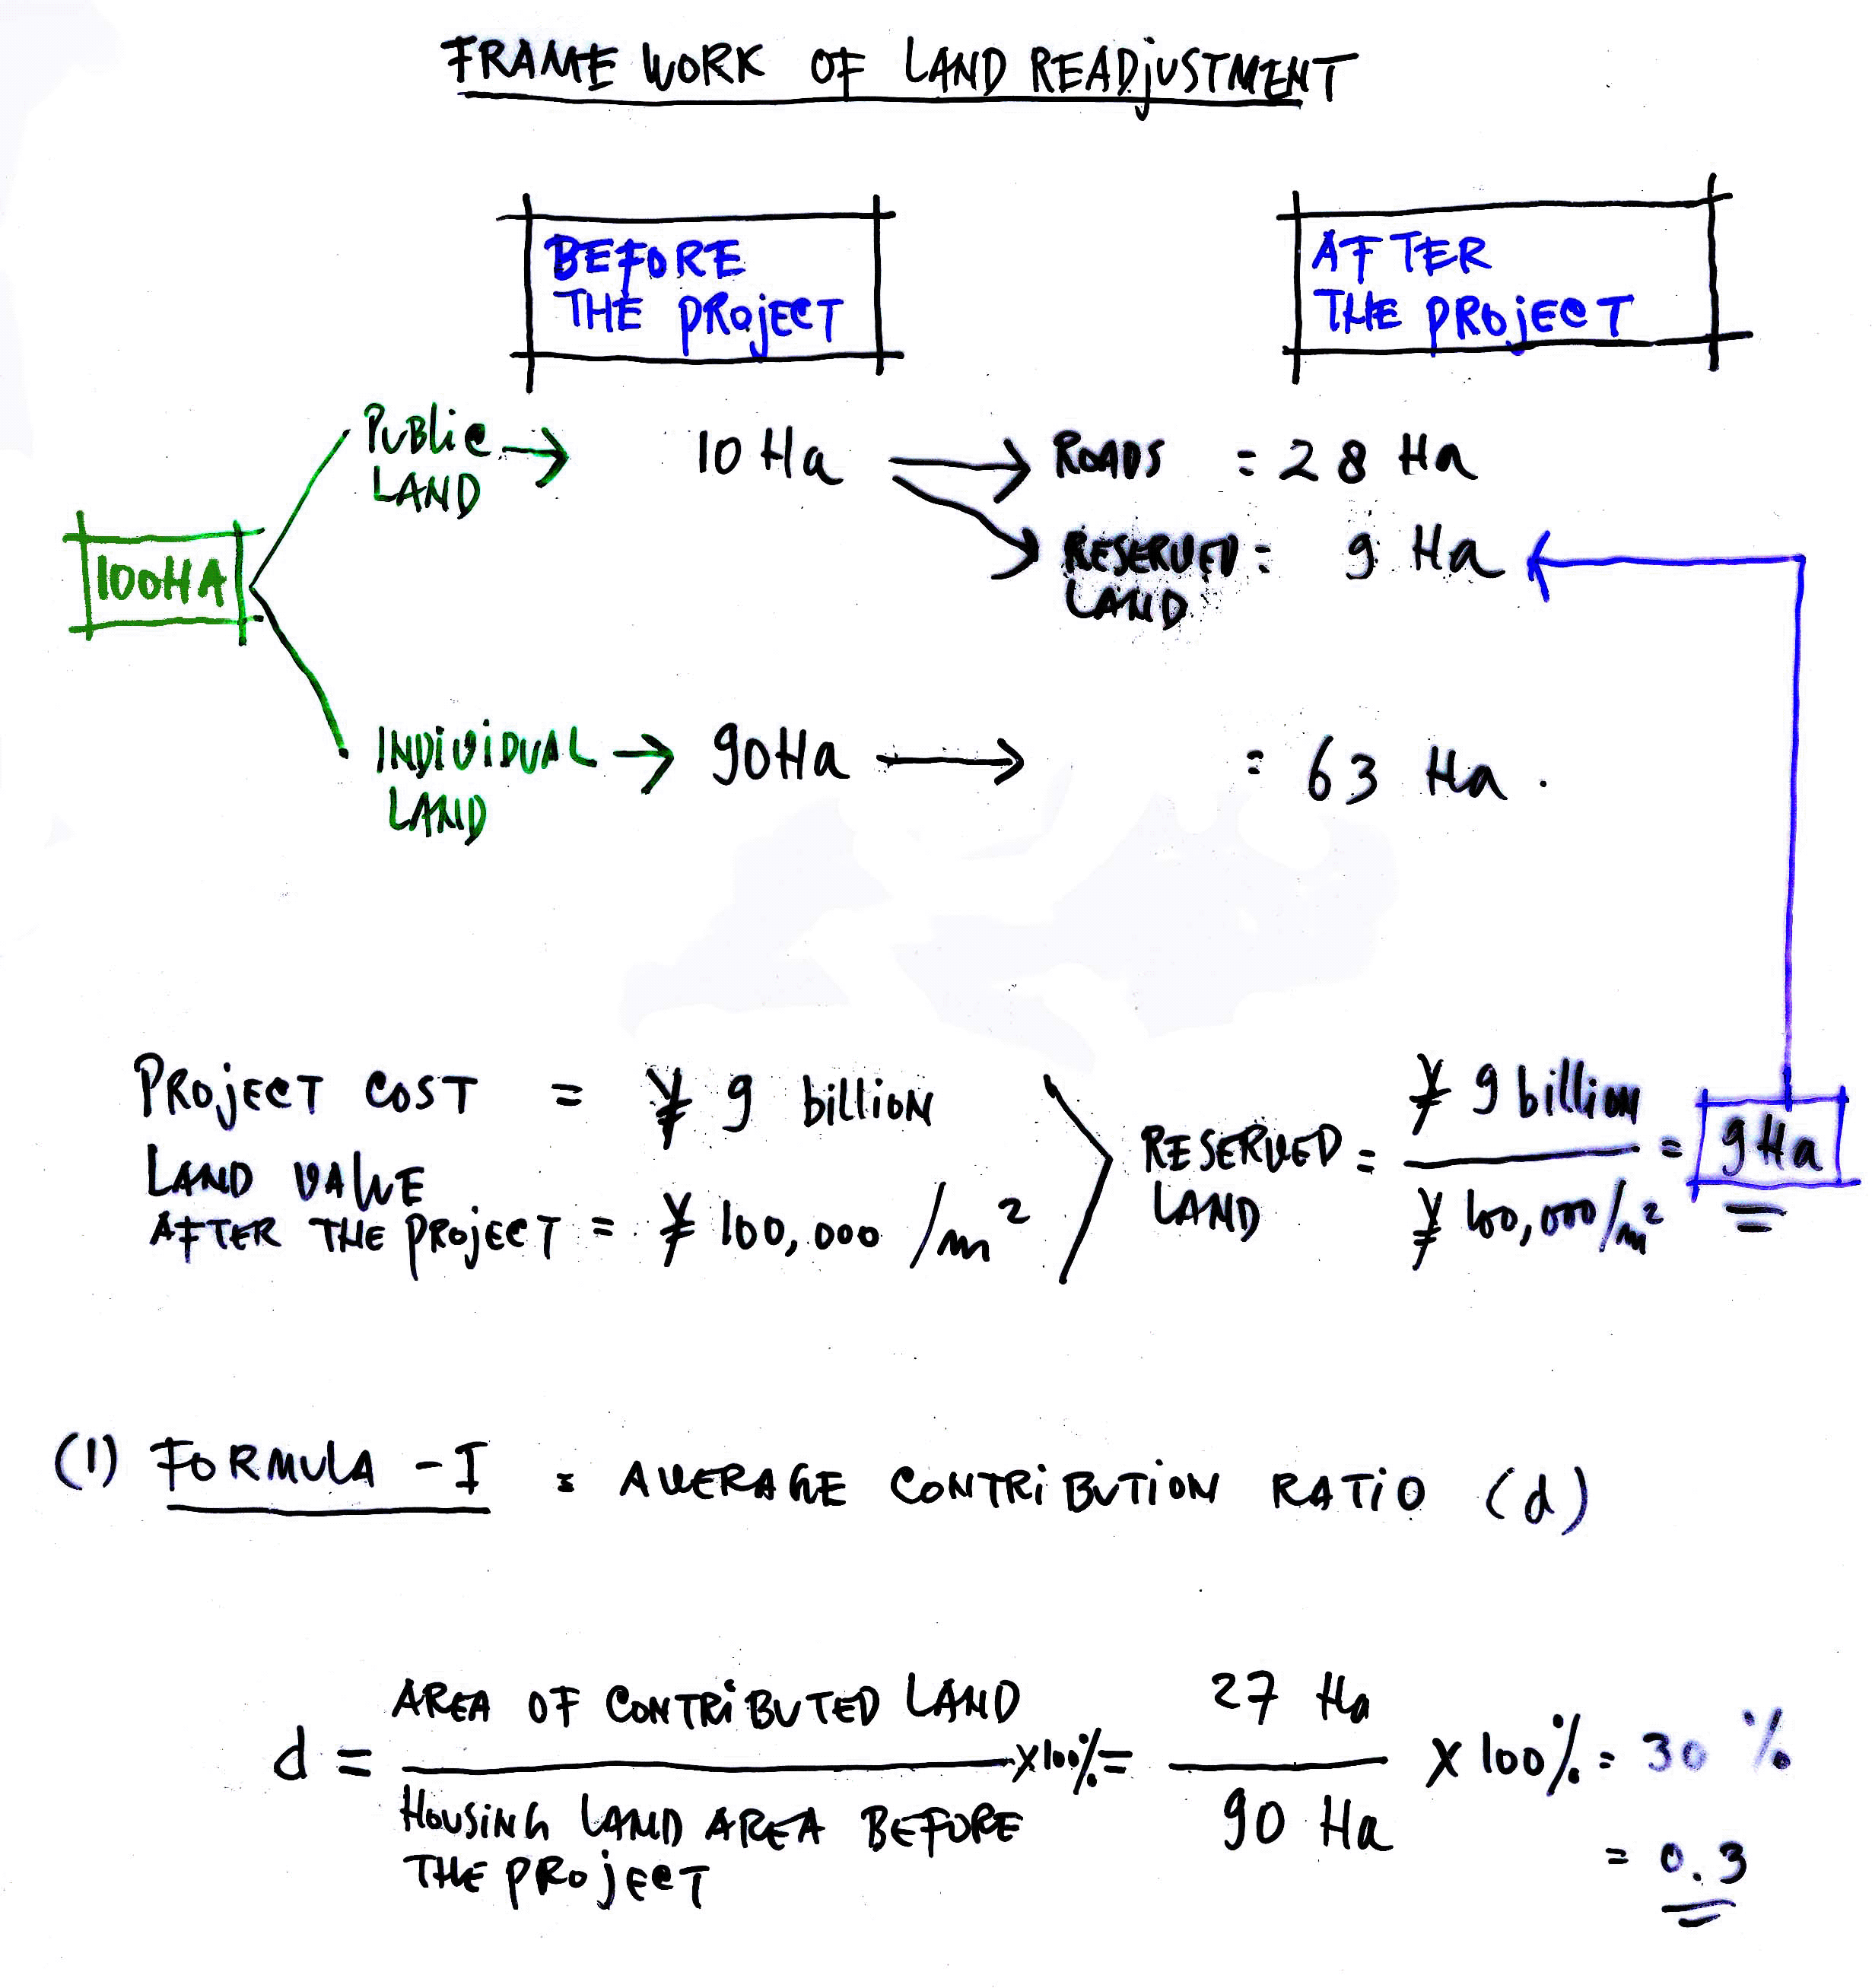 FRAME WORK OF LAND READJUSTMENT
BEFORE
THE PROJECT
AFTER
THE PROJECT
PUBLIC → 10 Ha → ROADS = 28 Ha
LAND
→ RESERVED = 9 Ha
LAND
100HA
INDIVIDUAL → 90Ha → = 63 Ha.
LAND
PROJECT COST = ¥ 9 billion
LAND VALUE
AFTER THE PROJECT = ¥ 100,000 /m²
RESERVED =
LAND
¥ 9 billion
¥ 100,000/m²
= 9Ha
(1) FORMULA - I : AVERAGE CONTRIBUTION RATIO (d)
AREA OF CONTRIBUTED LAND
d = ×100% =
HOUSING LAND AREA BEFORE
THE PROJECT
27 Ha
90 Ha
× 100% = 30 %
= 0.3